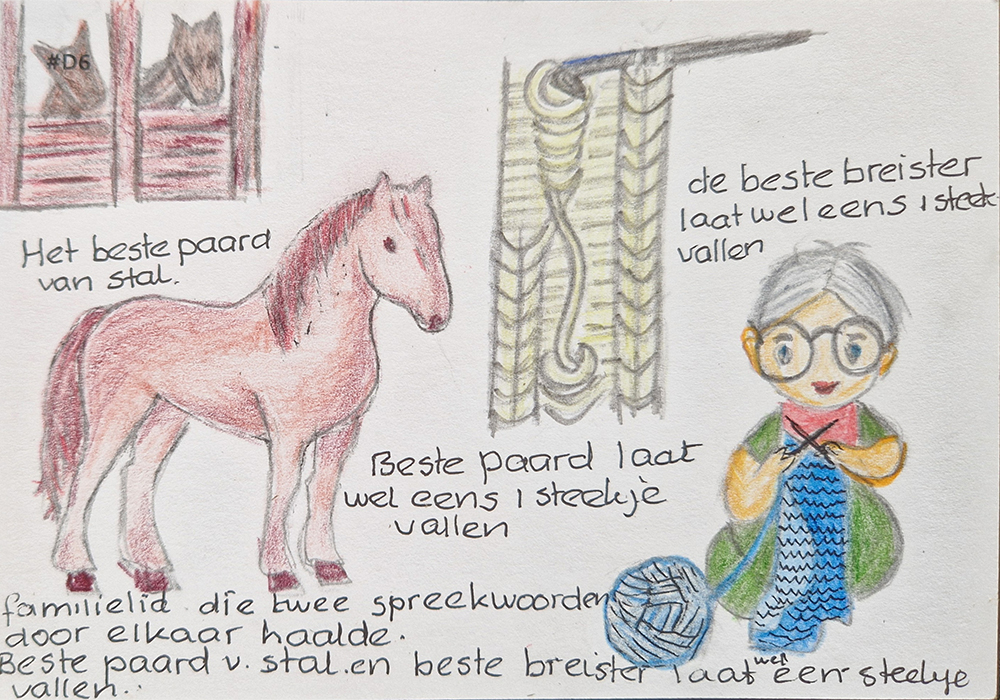 #D6
Het beste paard
van stal.
de beste breister
laat wel eens 1 steek
vallen
Beste paard laat
wel eens 1 steekje
vallen
familielid die twee spreekwoorden
door elkaar haalde.
Beste paard v. stal en beste breister laat wel een steekje
vallen..